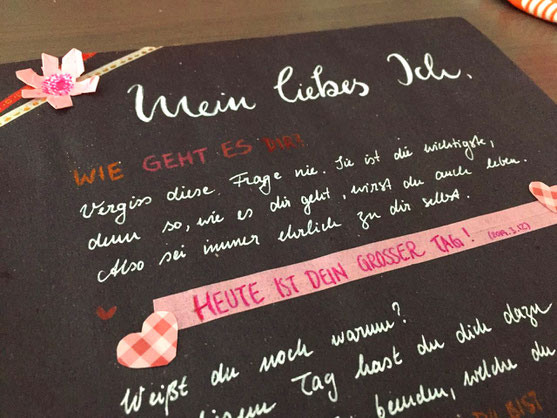 Mein liebes Ich,
WIE GEHT ES DIR?
Vergiss diese Frage nie. Sie ist die wichtigste,
denn so, wie es dir geht, wirst du auch leben.
Also sei immer ehrlich zu dir selbst.
HEUTE IST DEIN GROSSER TAG! (2019.3.12)
Weißt du noch warum?
diesem Tag hast du dich dazu
beenden, welche du
IST